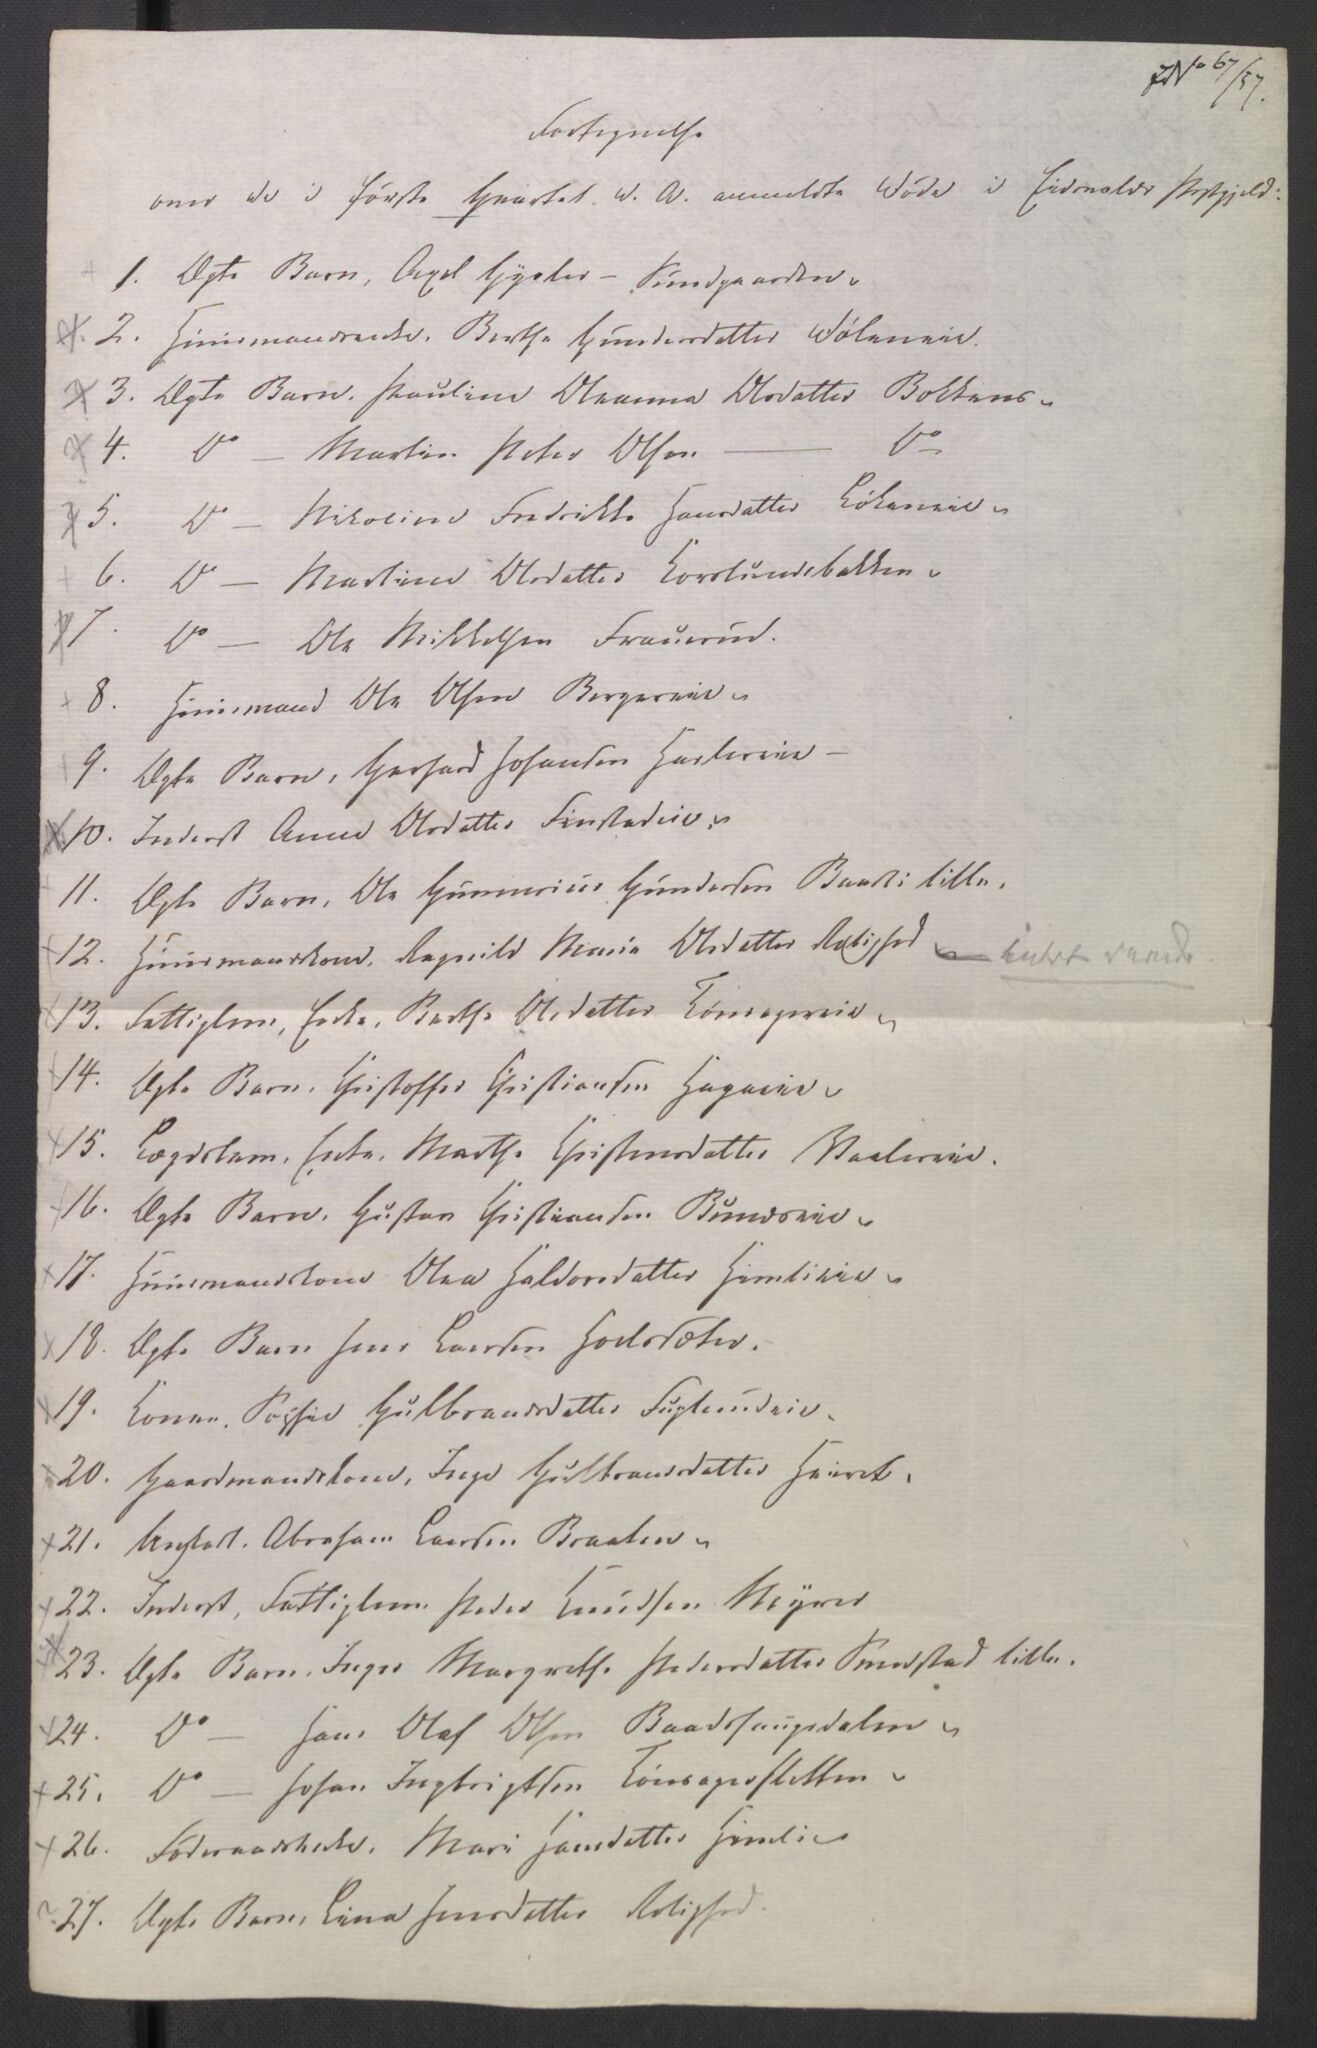 No 67/57.
Fortegnelse
over de i første Qvartal d. A. anmeldte Døde i Eidsvolds Præstgjeld:
1. Ægte Barn, Axel Gysler – Sundgaarden
2. Huusmandsenke. Berthe Gundersdatter Døleneie.
3. Ægte Barn. Pauline Oleanna Olsdatter Bolkens
4. Do — Martin Peter Olsen — Do
5. Do — Nikoline Fredrikke Hansdatter Løkeneie
6. Do — Martine Olsdatter Korslundsbakken
7. Do — Ole Mikkelsen Frauerud.
8. Huusmand Ole Olsen Bergereie
9. Ægte Barn, Gerhard Johansen Harlereie –
10. Inderst Anne Olsdatter Finstadeie
11. Ægte Barn. Ole Gunnerius Gundersen Baarli lille.
12. Huusmandskone. Ragnild Marie Olsdatter Rolighed
13. Fattiglem, Enke, Berthe Olsdatter Tønsagereie
14. Ægte Barn. Christoffer Christiansen Hagaeie
15. Lægdslem. Enke. Marthe Christensdatter Vaalereie.
16. Ægte Barn. Gustav Christiansen Bundseie
17. Huusmandskone Olea Haldorsdatter Himlieie
18. Ægte Barn Jens Larsen Hoelsæter.
19. Kone. Sophie Gulbrandsdatter Fugleudeie.
20. Gaardmandskone, Inge Gulbrandsdatter
21. Ungkarl. Abraham Larsen Braaten
22. Inderst, Fattiglem. Peder Knudsen Myrer
23. Ægte Barn. Inger Margrethe Pedersdatter Sundstad lille.
24. Do — Hans Olaf Olsen Baadshaugsdalen
25. Do — Johan Ingbrigtsen Tønsagersletten
26. Føderaadsenke. Mari Hansdatter Himlie
27. Ægte Barn, Lina Jensdatter Rolighed.